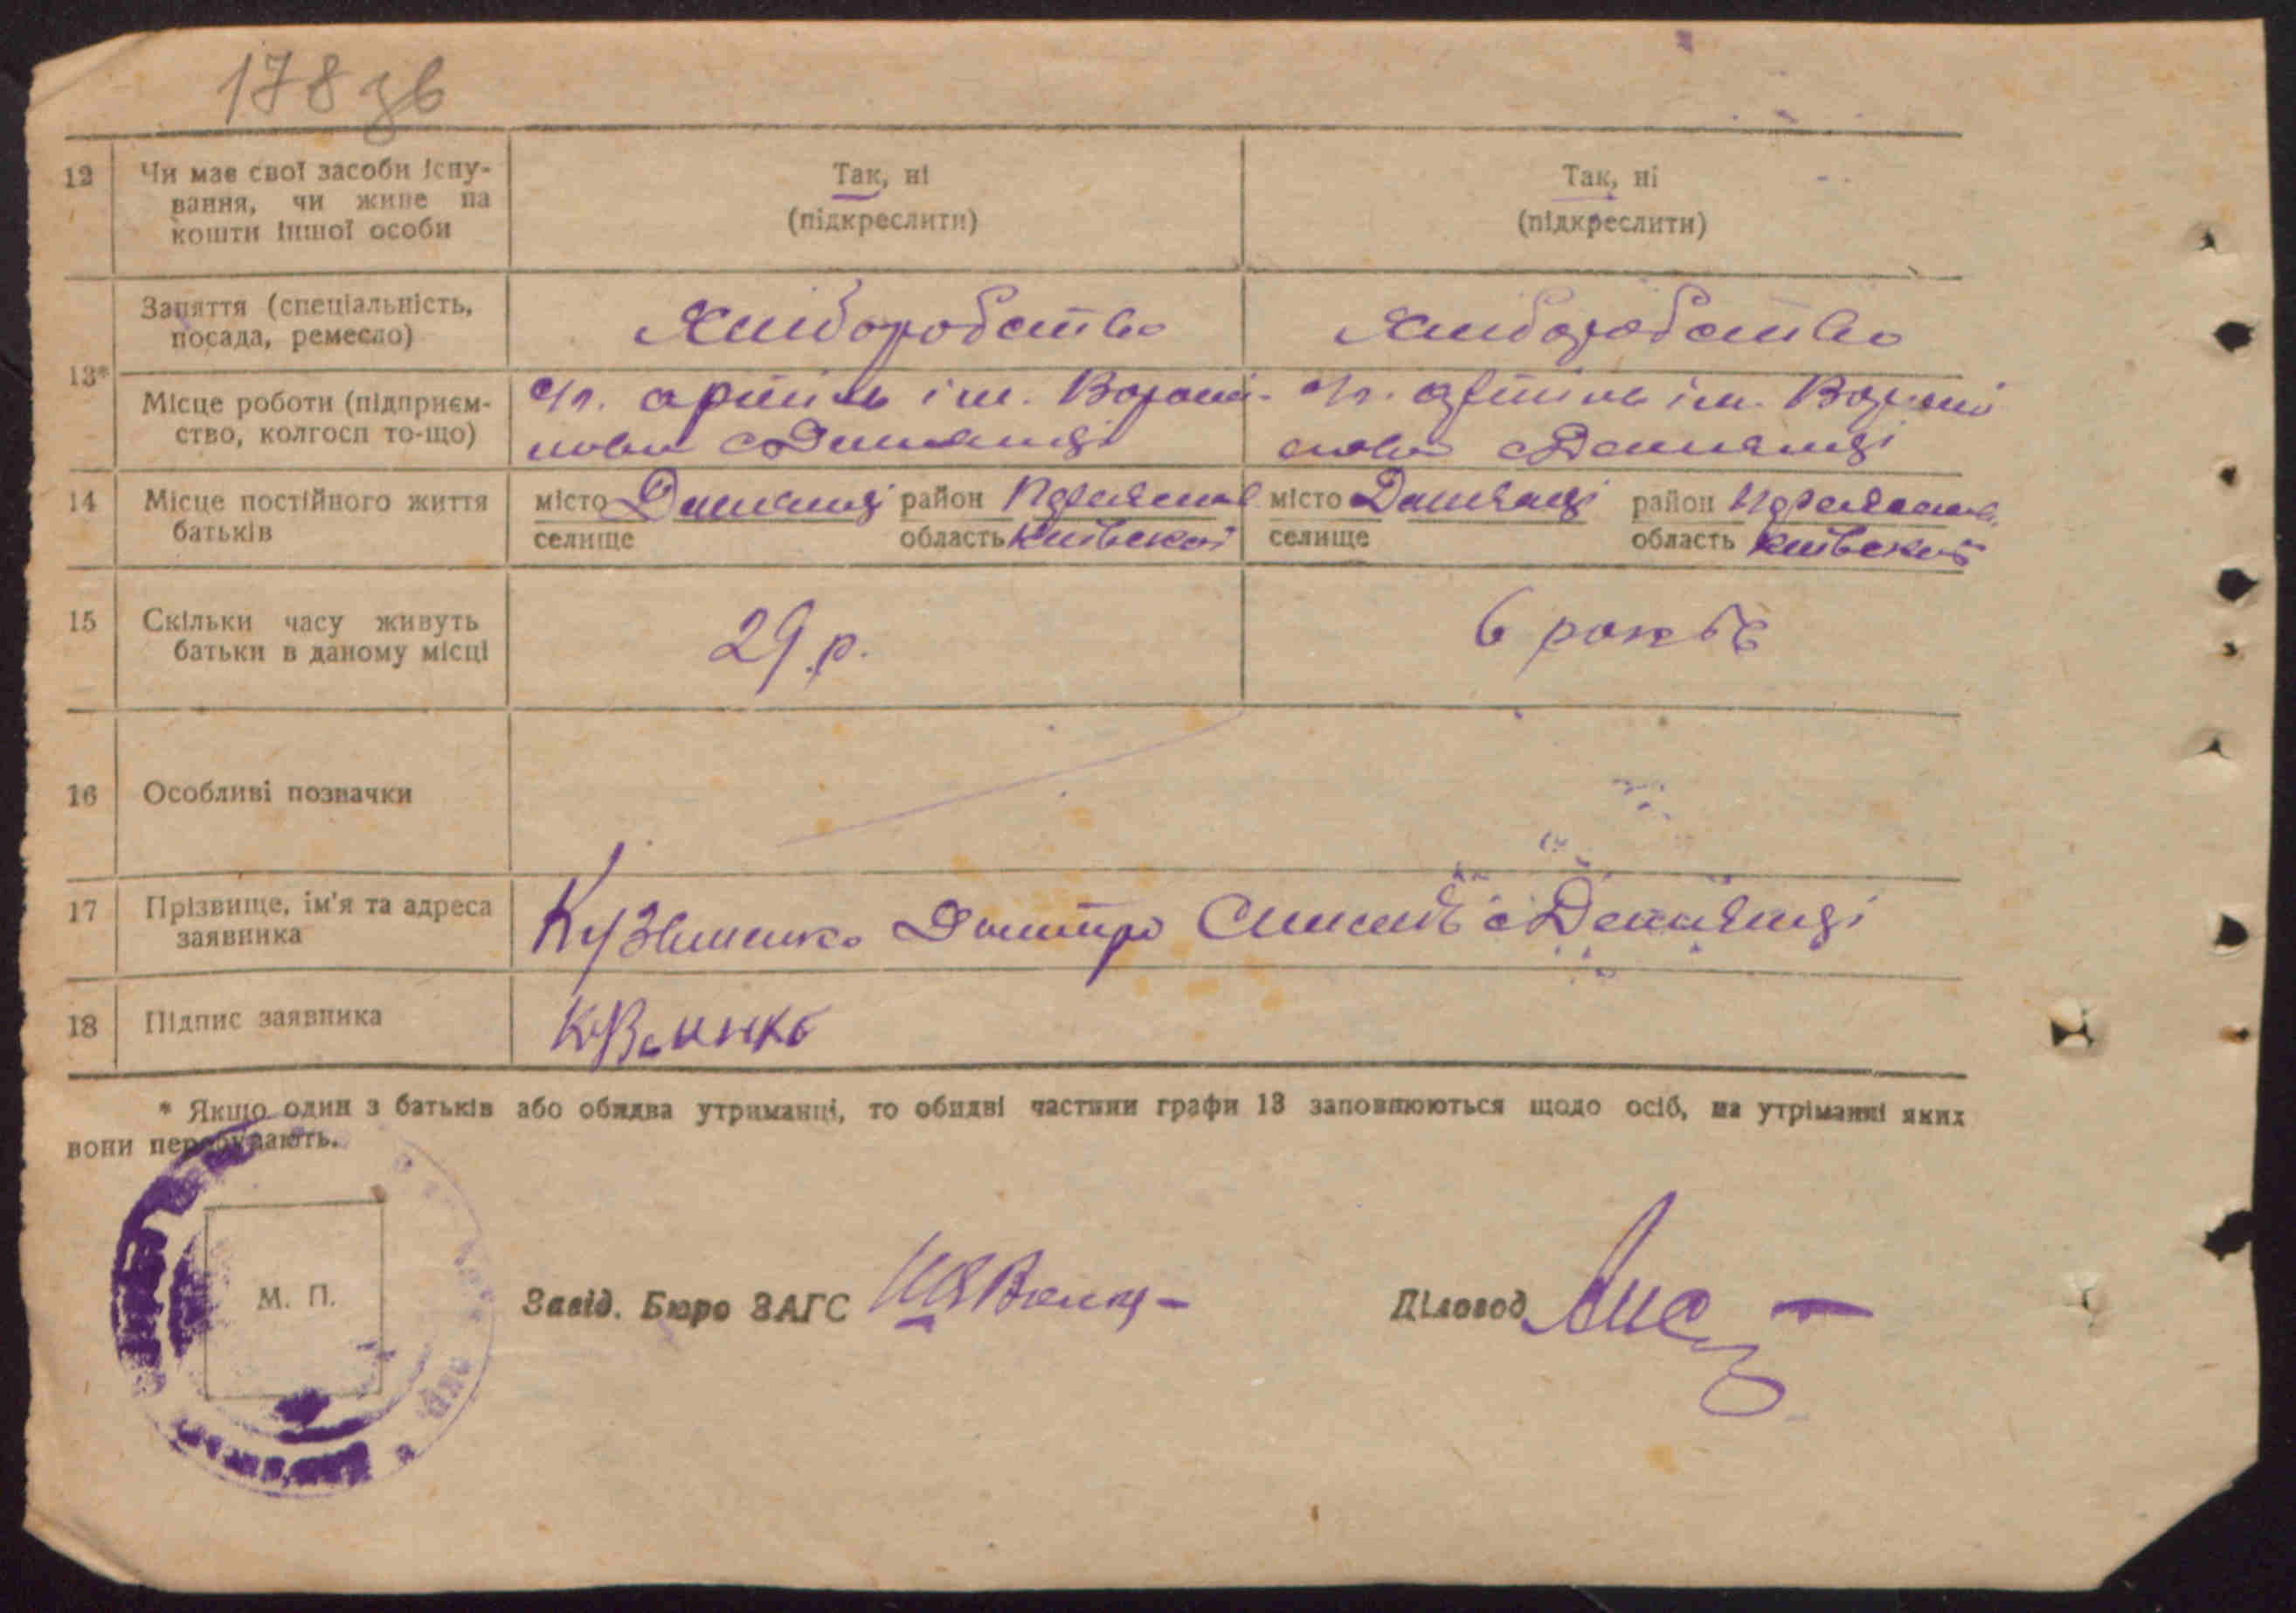 178 зв
12 Чи має свої засоби існу- Так, ні Так, ні
вання, чи живе на (підкреслити) (підкреслити)
кошти іншої особи
13* Заняття (спеціальність, Хліборобство Хліборобство
посада, ремесло)
Місце роботи (підприєм- с/г. артіль ім. Вороши- с/г. артіль ім. Вороши
ство, колгосп то-що) лова с Дем'янці лова с Дем'янці
14 Місце постійного життя місто Дем'янці район місто Дем'янці район
батьків селище область Київської селище область Київської
15 Скільки часу живуть 29 р. 6 років
батьки в даному місці
16 Особливі позначки
17 Прізвище, ім'я та адреса Кузьменко Дмитро с Дем'янці
заявника
18 Підпис заявника
* Якщо один з батьків або обидва утриманці, то обидві частини графи 13 заповнюються щодо осіб, на утріманні яких
вони перебувають.
М. П. Завід. Бюро ЗАГС Діловод